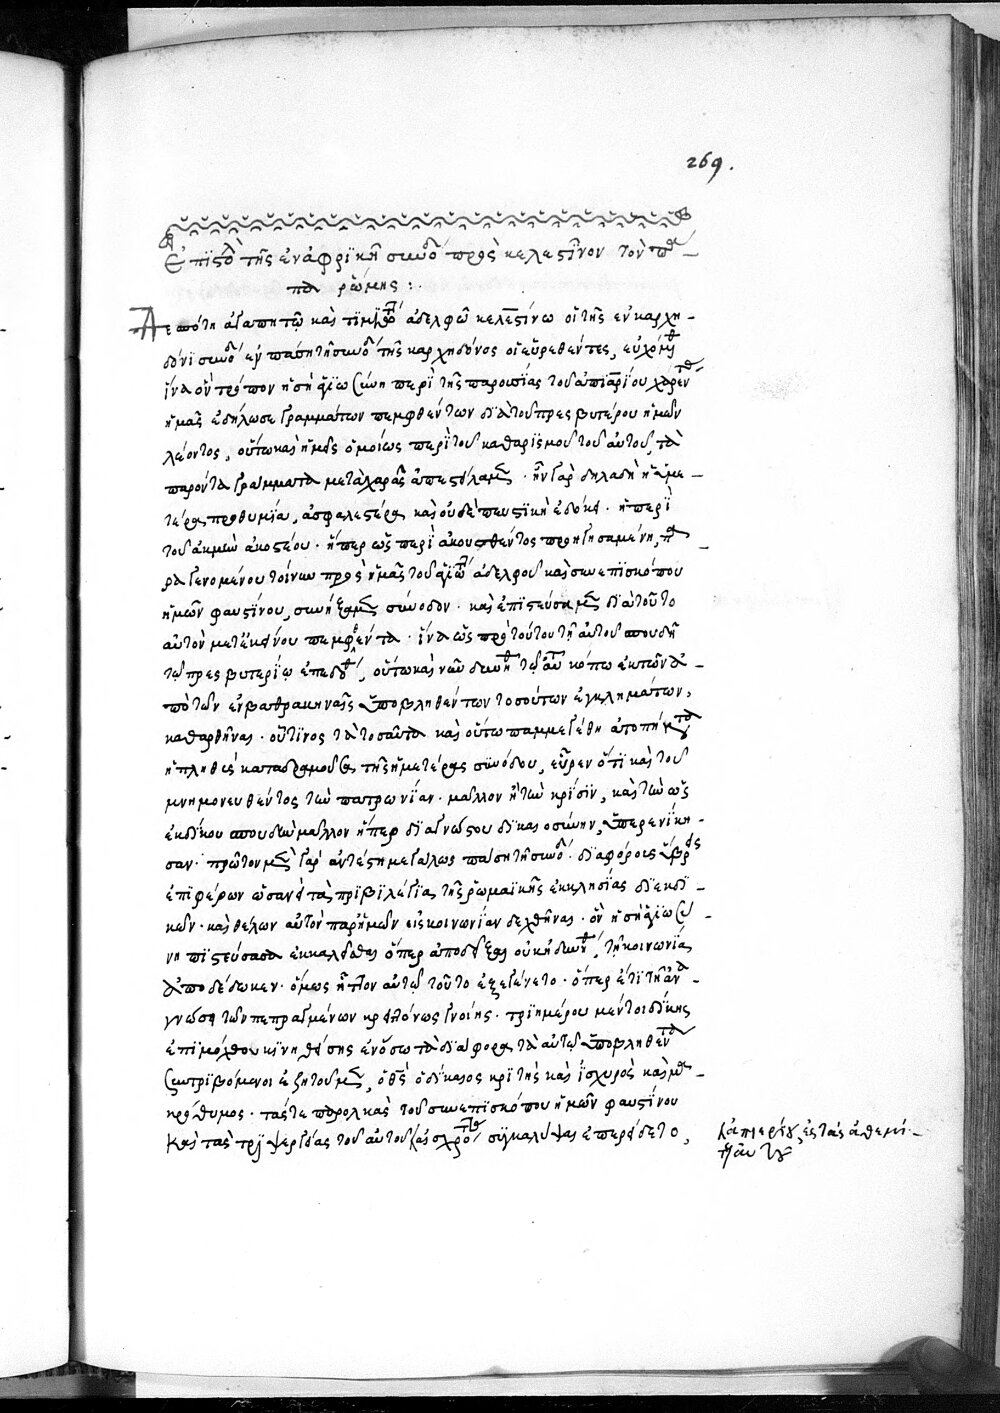 269.
Ἐπιστολὴ τῆς ἐν ἀφρικῇ συνόδου πρὸς κελεστῖνον τὸν πά
πα ῥώμης :.
Δεσπότῃ ἀγαπητῷ καὶ τιμιωτάτῳ ἀδελφῷ κελεστίνῳ οἱ τῆς ἐν καρχη
δόνι συνόδου ἐν πάσῃ τῇ συνόδῳ τῆς καρχηδόνος οἱ εὑρεθέντες, εὐχόμεθα
ἵνα ὃν τρόπον ἡ σὴ ἁγιωσύνη περὶ τῆς παρουσίας τοῦ ἀπιαρίου χαρέντας
ἡμᾶς ἐδήλωσε γραμμάτων πεμφθέντων διὰ τοῦ πρεσβυτέρου ἡμῶν
λέοντος, οὕτω καὶ ἡμεῖς ὁμοίως περὶ τοῦ καθαρισμοῦ τοῦ αὐτοῦ, τὰ
παρόντα γράμματα μετὰ χαρᾶς ἀπεστείλαμεν. ἦν γὰρ δηλαδὴ ἡ ἡμε
τέρα προθυμία, ἀσφαλεστέρα καὶ οὐδὲ πευστικὴ ἐδόκει. ἡ περὶ
τοῦ ἀκμὴν ἀκουστέου. ἤπερ ὡς περὶ ἀκουσθέντος προηγησαμένη, πα
ραγενομένου τοίνυν πρὸς ἡμᾶς τοῦ ἁγιωτάτου ἀδελφοῦ καὶ συνεπισκόπου
ἡμῶν φαυστίνου, συνήξαμεν σύνοδον. καὶ ἐπιστεύσαμεν διὰ τοῦτο
αὐτὸν μετ' ἐκείνου πεμφθέντα. ἵνα ὡς πρὸ τούτου τῇ αὐτοῦ σπουδῇ
τῷ πρεσβυτερίῳ ἐπεδόθη, οὕτω καὶ νῦν δυνηθῇ τῷ αὐτοῦ κόπῳ ἐκ τῶν ἀ
πὸ τῶν ἐν βαθρακηναῖς ὑποβληθέντων τοσούτων ἐγκλημάτων,
καθαρθῆναι. οὗτινος τὰ τοσαῦτα καὶ οὕτω παμμεγέθη ἀτοπήματα
ἡ πληθὺς καταδραμοῦσα τῆς ἡμετέρας συνόδου, εὗρεν ὅτι καὶ τοῦ
μνημονευθέντος τὴν πατρωνίαν. μᾶλλον ἢ τὴν κρίσιν, καὶ τὴν ὡς
ἐκδίκου σπουδὴν μᾶλλον ἤπερ διαγνώστου δικαιοσύνην, ὑπερενίκη
σαν. πρῶτον μὲν γὰρ ἀντέστη μεγάλως πάσῃ τῇ συνόδῳ. διαφόροις ὕβρεις
ἐπιφέρων ὡσανεὶ τὰ πριβιλέγια τῆς ῥωμαικῆς ἐκκλησίας διεκδι
κῶν. καὶ θέλων αὐτὸν παρ' ἡμῶν εἰς κοινωνίαν δεχθῆναι. ὃν ἡ σὴ ἁγιωσύ
νη πιστεύσασα ἐκκαλεῖσθαι ὅπερ ἀποδεῖξαι οὐκ ἠδυνήθη, τῇ κοινωνίᾳ
ἀποδέδωκεν. ὅμως ἧττον αὐτῷ τοῦτο ἐξεγένετο. ὅπερ ἔτι τῇ ἀνα
γνώσει τῶν πεπραγμένων κρειττόνως γνοίης. τριημέρου μέντοι δίκης
ἐπιμόχθου κινηθείσης ἐν ὅσῳ τὰ διάφορα τὰ αὐτῷ ὑποβληθέντα
συντριβόμενοι ἐζητοῦμεν, ὁ θεὸς ὁ δίκαιος κριτὴς καὶ ἰσχυρὸς καὶ μα
κρόθυμος. τάς τε παρολκὰς τοῦ συνεπισκόπου ἡμῶν φαυστίνου
καὶ τὰς τριψεργίας τοῦ αὐτοῦ συγκαλύψαι ἐπειρᾶτο,